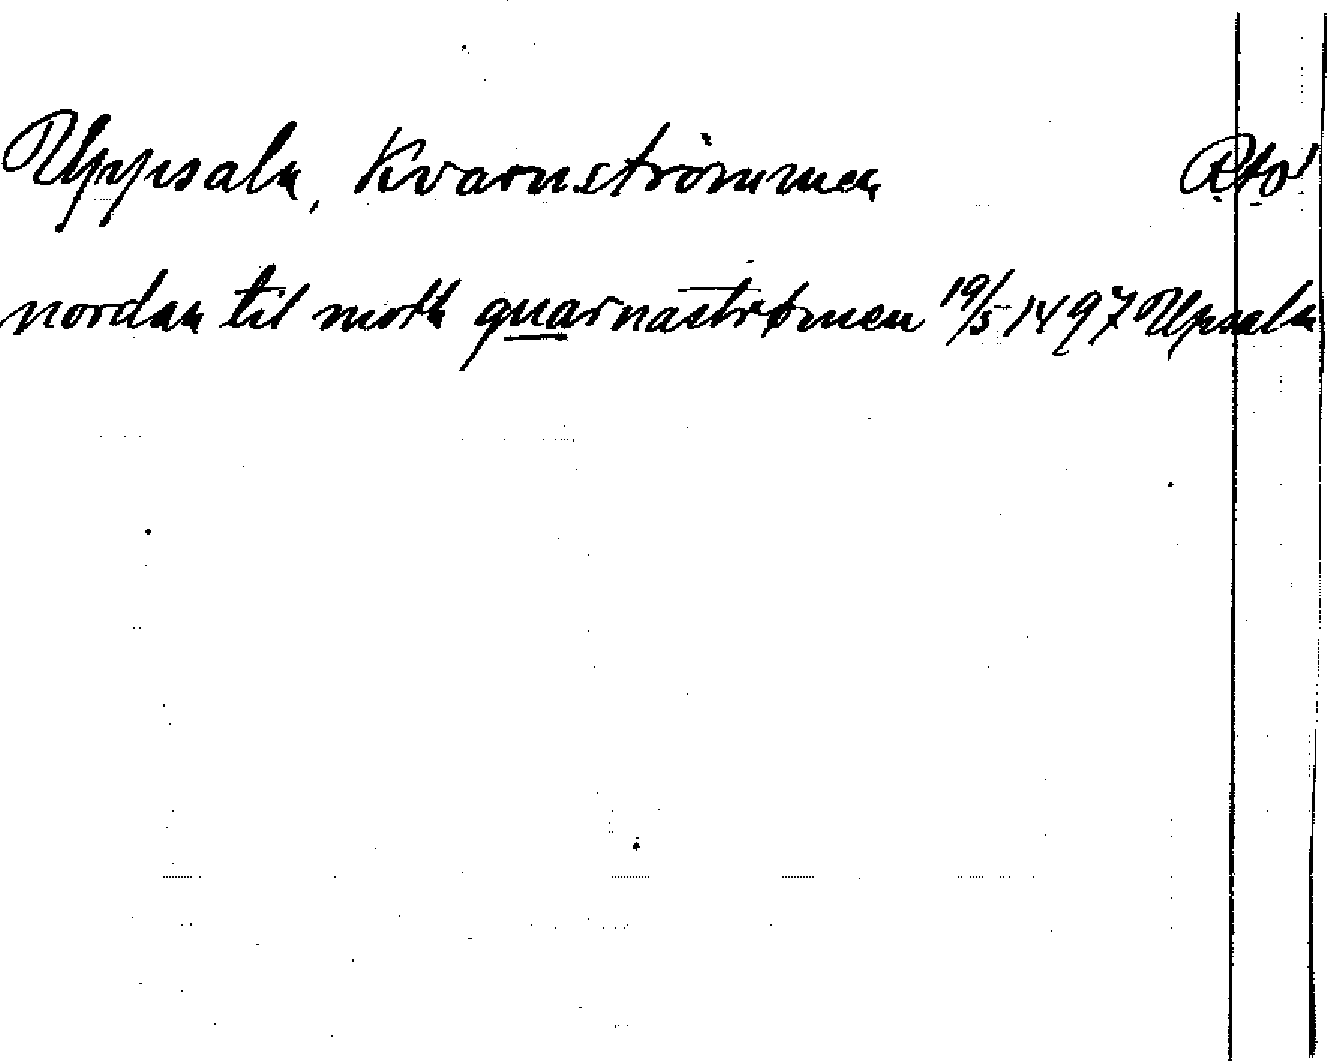 Uppsala, Kvarnströmmen Rtp!
nordan til moth quarnastrømen 19/5 1497 Upsala